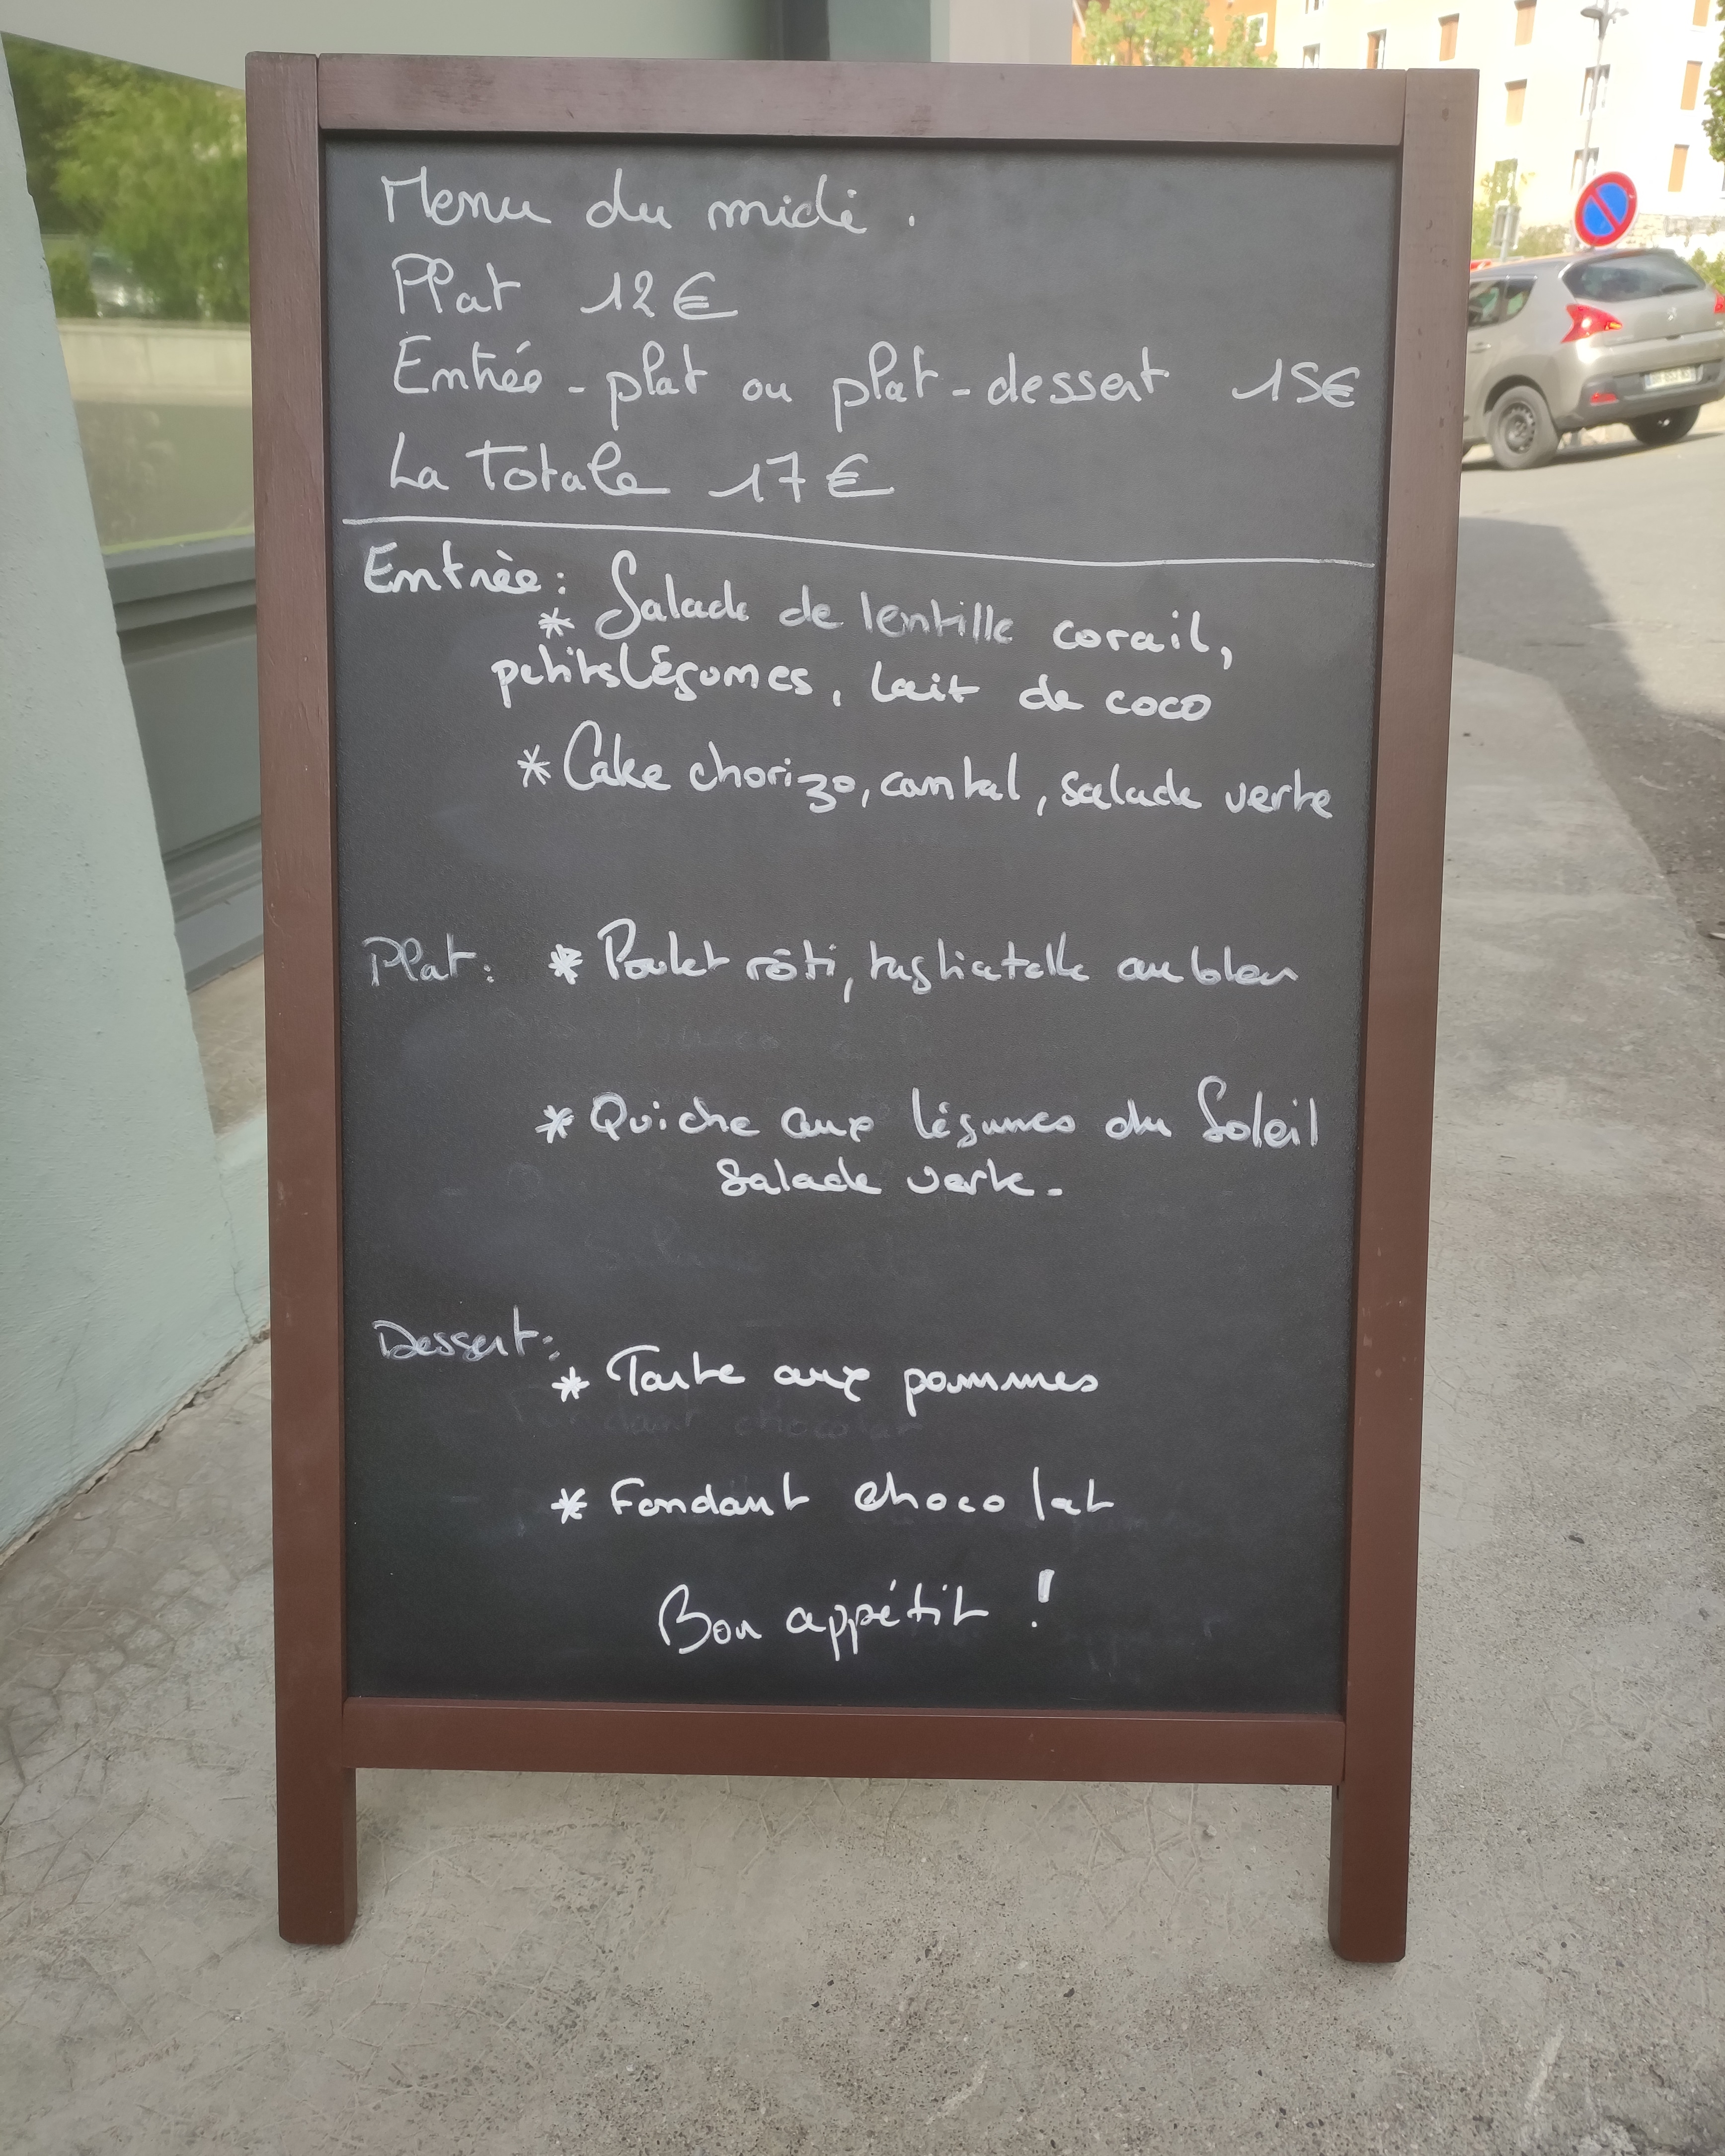 Menu du midi.
Plat 12€
Entrée - plat ou plat - dessert 15€
La Totale 17€
Entrèe:
* Salade de lentille corail,
petits légumes, lait de coco
* Cake chorizo, cantal, salade verte
Plat: * Poulet rôti, tagliatelle au bleu
* Quiche aux légumes du Soleil
Salade verte.
Dessert:
* Tarte aux pommes
* Fondant chocolat
Bon appétit !